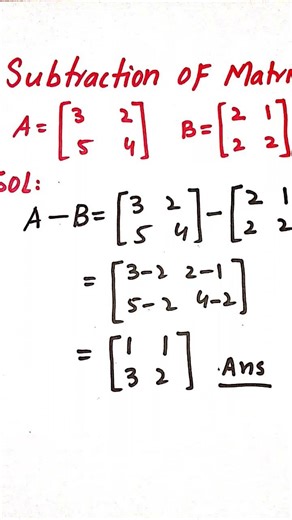 Subtraction OF Matr
A = [3 2 5 4] B = [2 1 2 2]
SOL:
A - B = [3 2 5 4] - [2 1 2 2]
= [3-2 2-1 5-2 4-2]
= [1 1 3 2] Ans